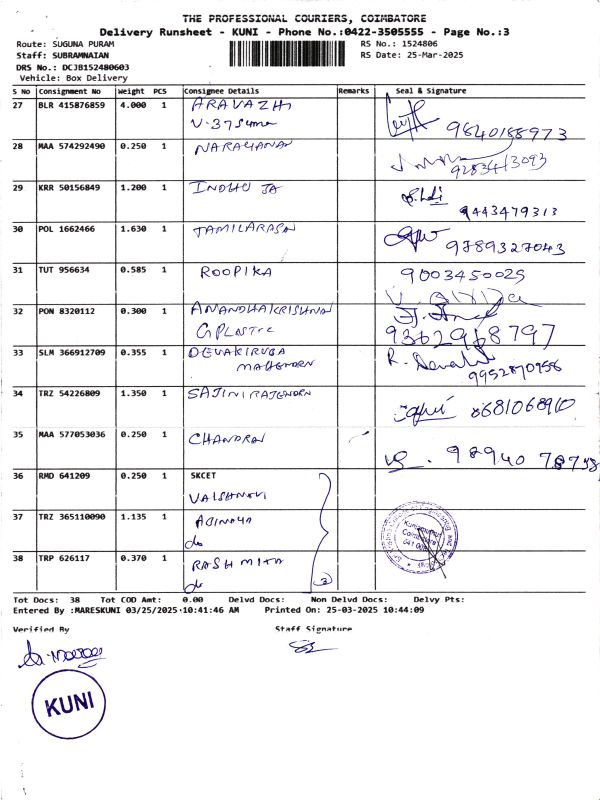 THE PROFESSIONAL COURIERS, COIMBATORE
Delivery Runsheet - KUNI - Phone No.:0422-3505555 - Page No.:3
Route: SUGUNA PURAM
Staff: SUBRAMNAIAN
DRS No.: DCJB152480603
Vehicle: Box Delivery
RS No.: 1524806
RS Date: 25-Mar-2025
S No Consignment No Weight PCS Consignee Details Remarks Seal & Signature
27 BLR 415876859 4.000 1 ARAVAZHI
9840188973
28 MAA 574292490 0.250 1 NARAYANAN
9283413093
29 KRR 50156849 1.200 1 INDHU JA
9443479313
30 POL 1662466 1.630 1 TAMILARASN
9789327043
31 TUT 956634 0.585 1 ROOPIKA 9003450025
32 PON 8320112 0.300 1 ANANDHAKRISHNAN
G PLASTIC 9362968797
33 SLM 366912709 0.355 1 DEVAKIRUBA
MAHENDRN 9952870958
34 TRZ 54226809 1.350 1 SAJINI RAJENDRN
8681068910
35 MAA 577053036 0.250 1 CHANDRAN
98940 78758
36 RMD 641209 0.250 1 SKCET
VAISHNAVI
37 TRZ 365110090 1.135 1 ABINAYA
do
38 TRP 626117 0.370 1 RASHMITA
do 3
Tot Docs: 38 Tot COD Amt: 0.00 Delvd Docs: Non Delvd Docs: Delvy Pts:
Entered By :MARESKUNI 03/25/2025-10:41:46 AM Printed On: 25-03-2025 10:44:09
Verified By Staff Signature
KUNI